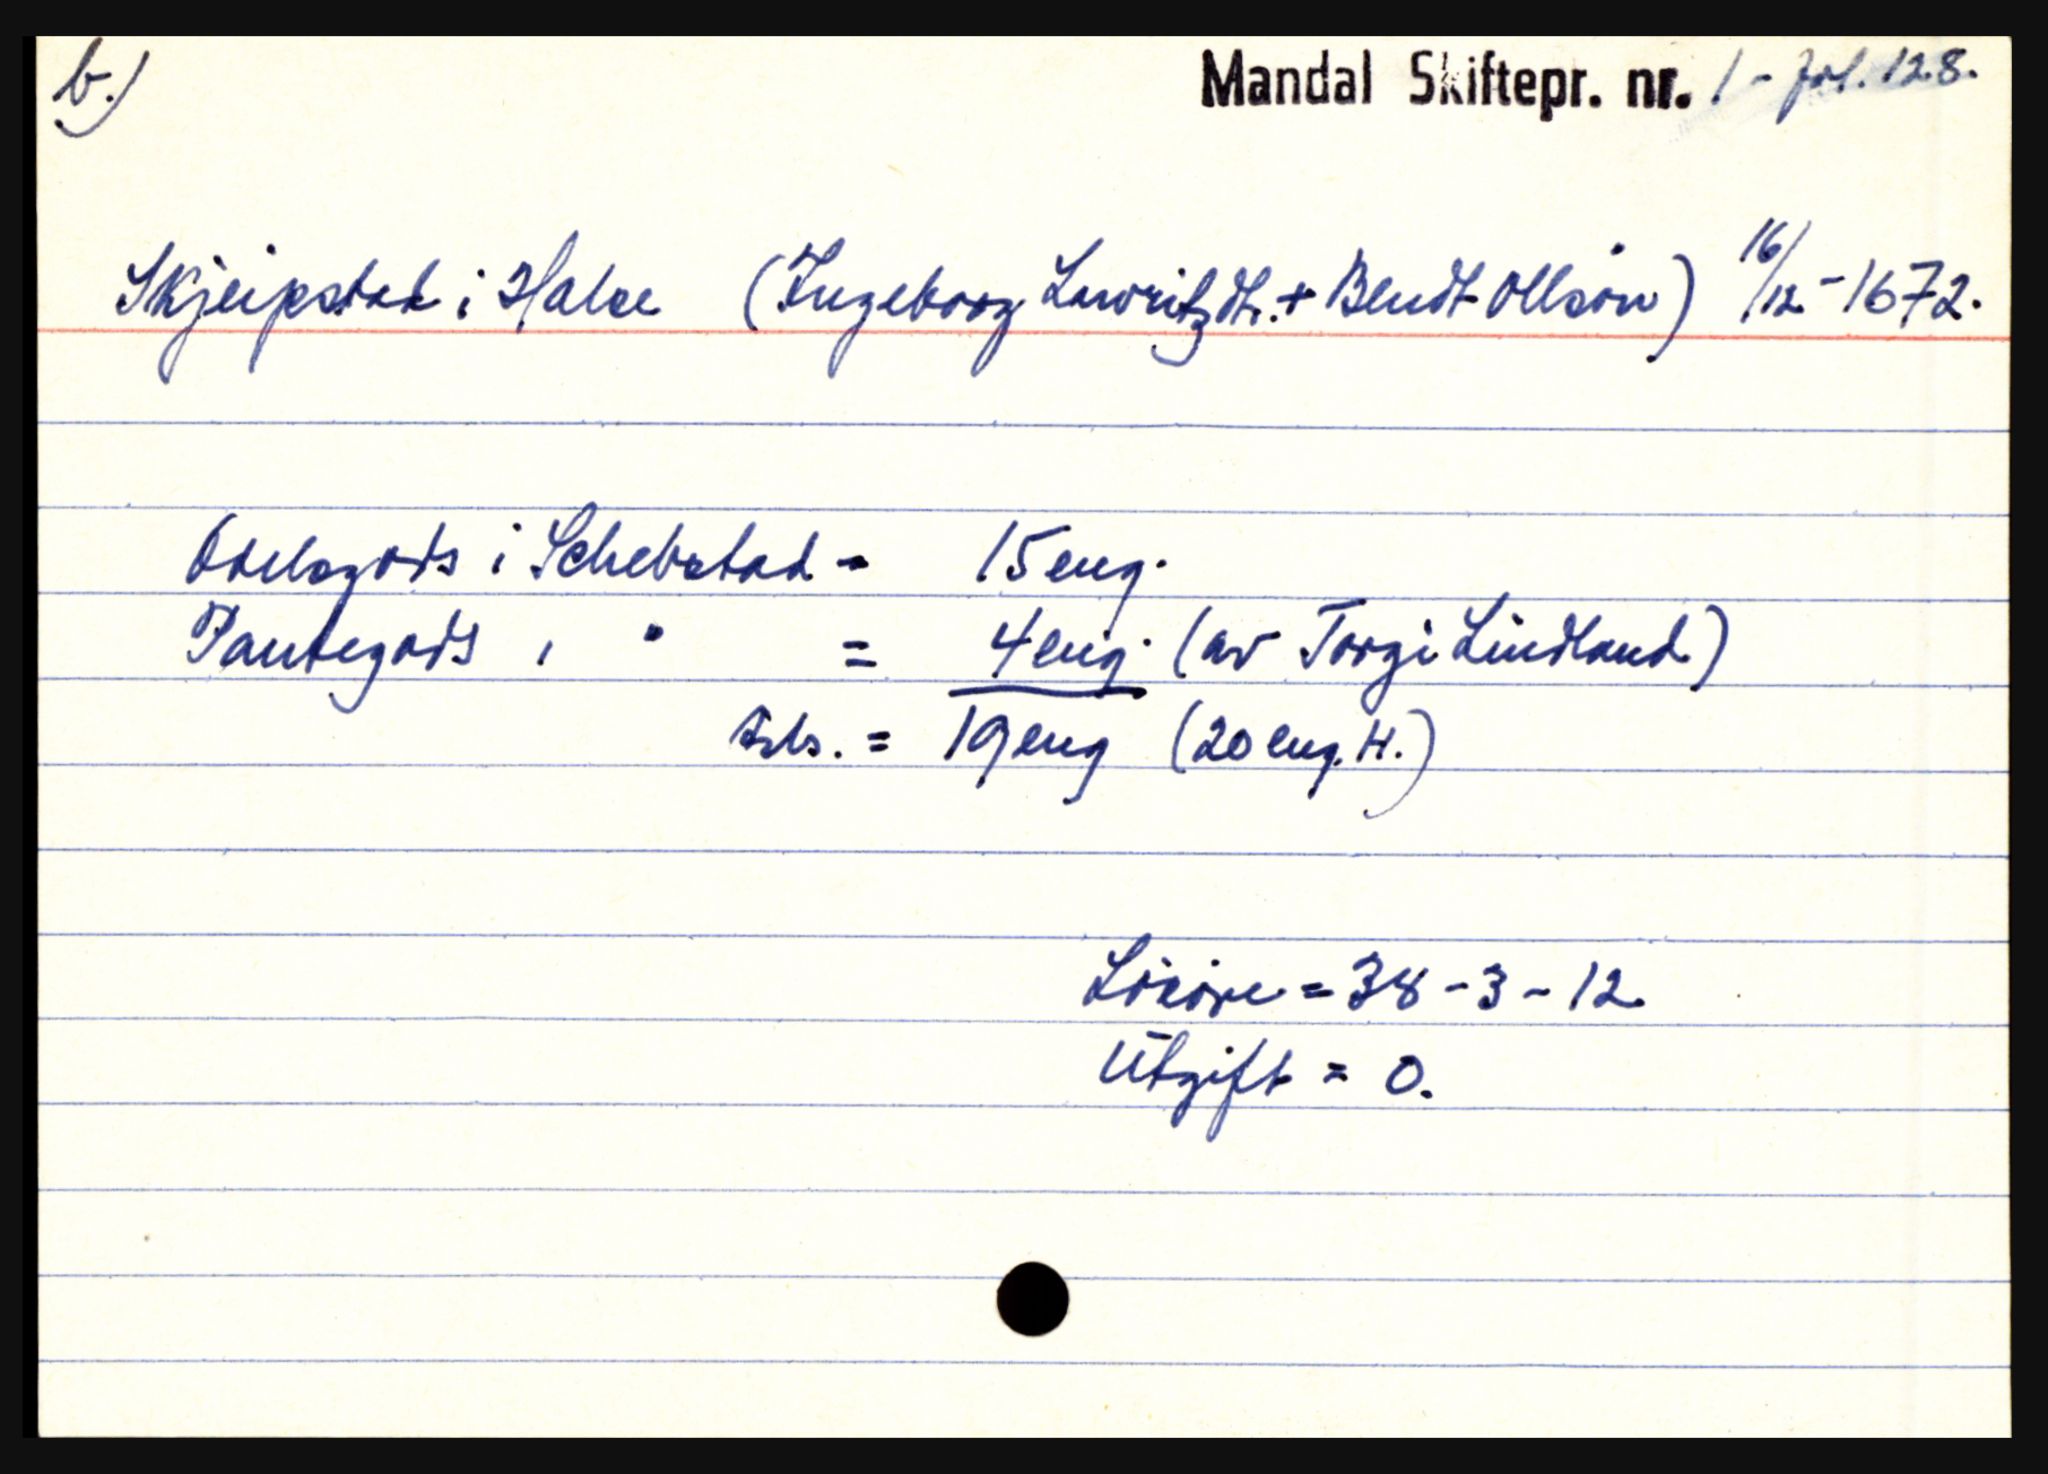 b.)
Mandal Skiftepr. nr. 1 - fol. 128.
Skjeipstad i Halse (Ingeborg Lawritzdtr. + Bendt Ollsøn) 16/12 - 1672.
Odelsgods i Schebstad = 15 eng.
Pantegods i " = 4 eng. (av Torgi Lindland)
= 19 eng (20 eng. H.)
Løsøre = 38 - 3 - 12
Utgift = 0.